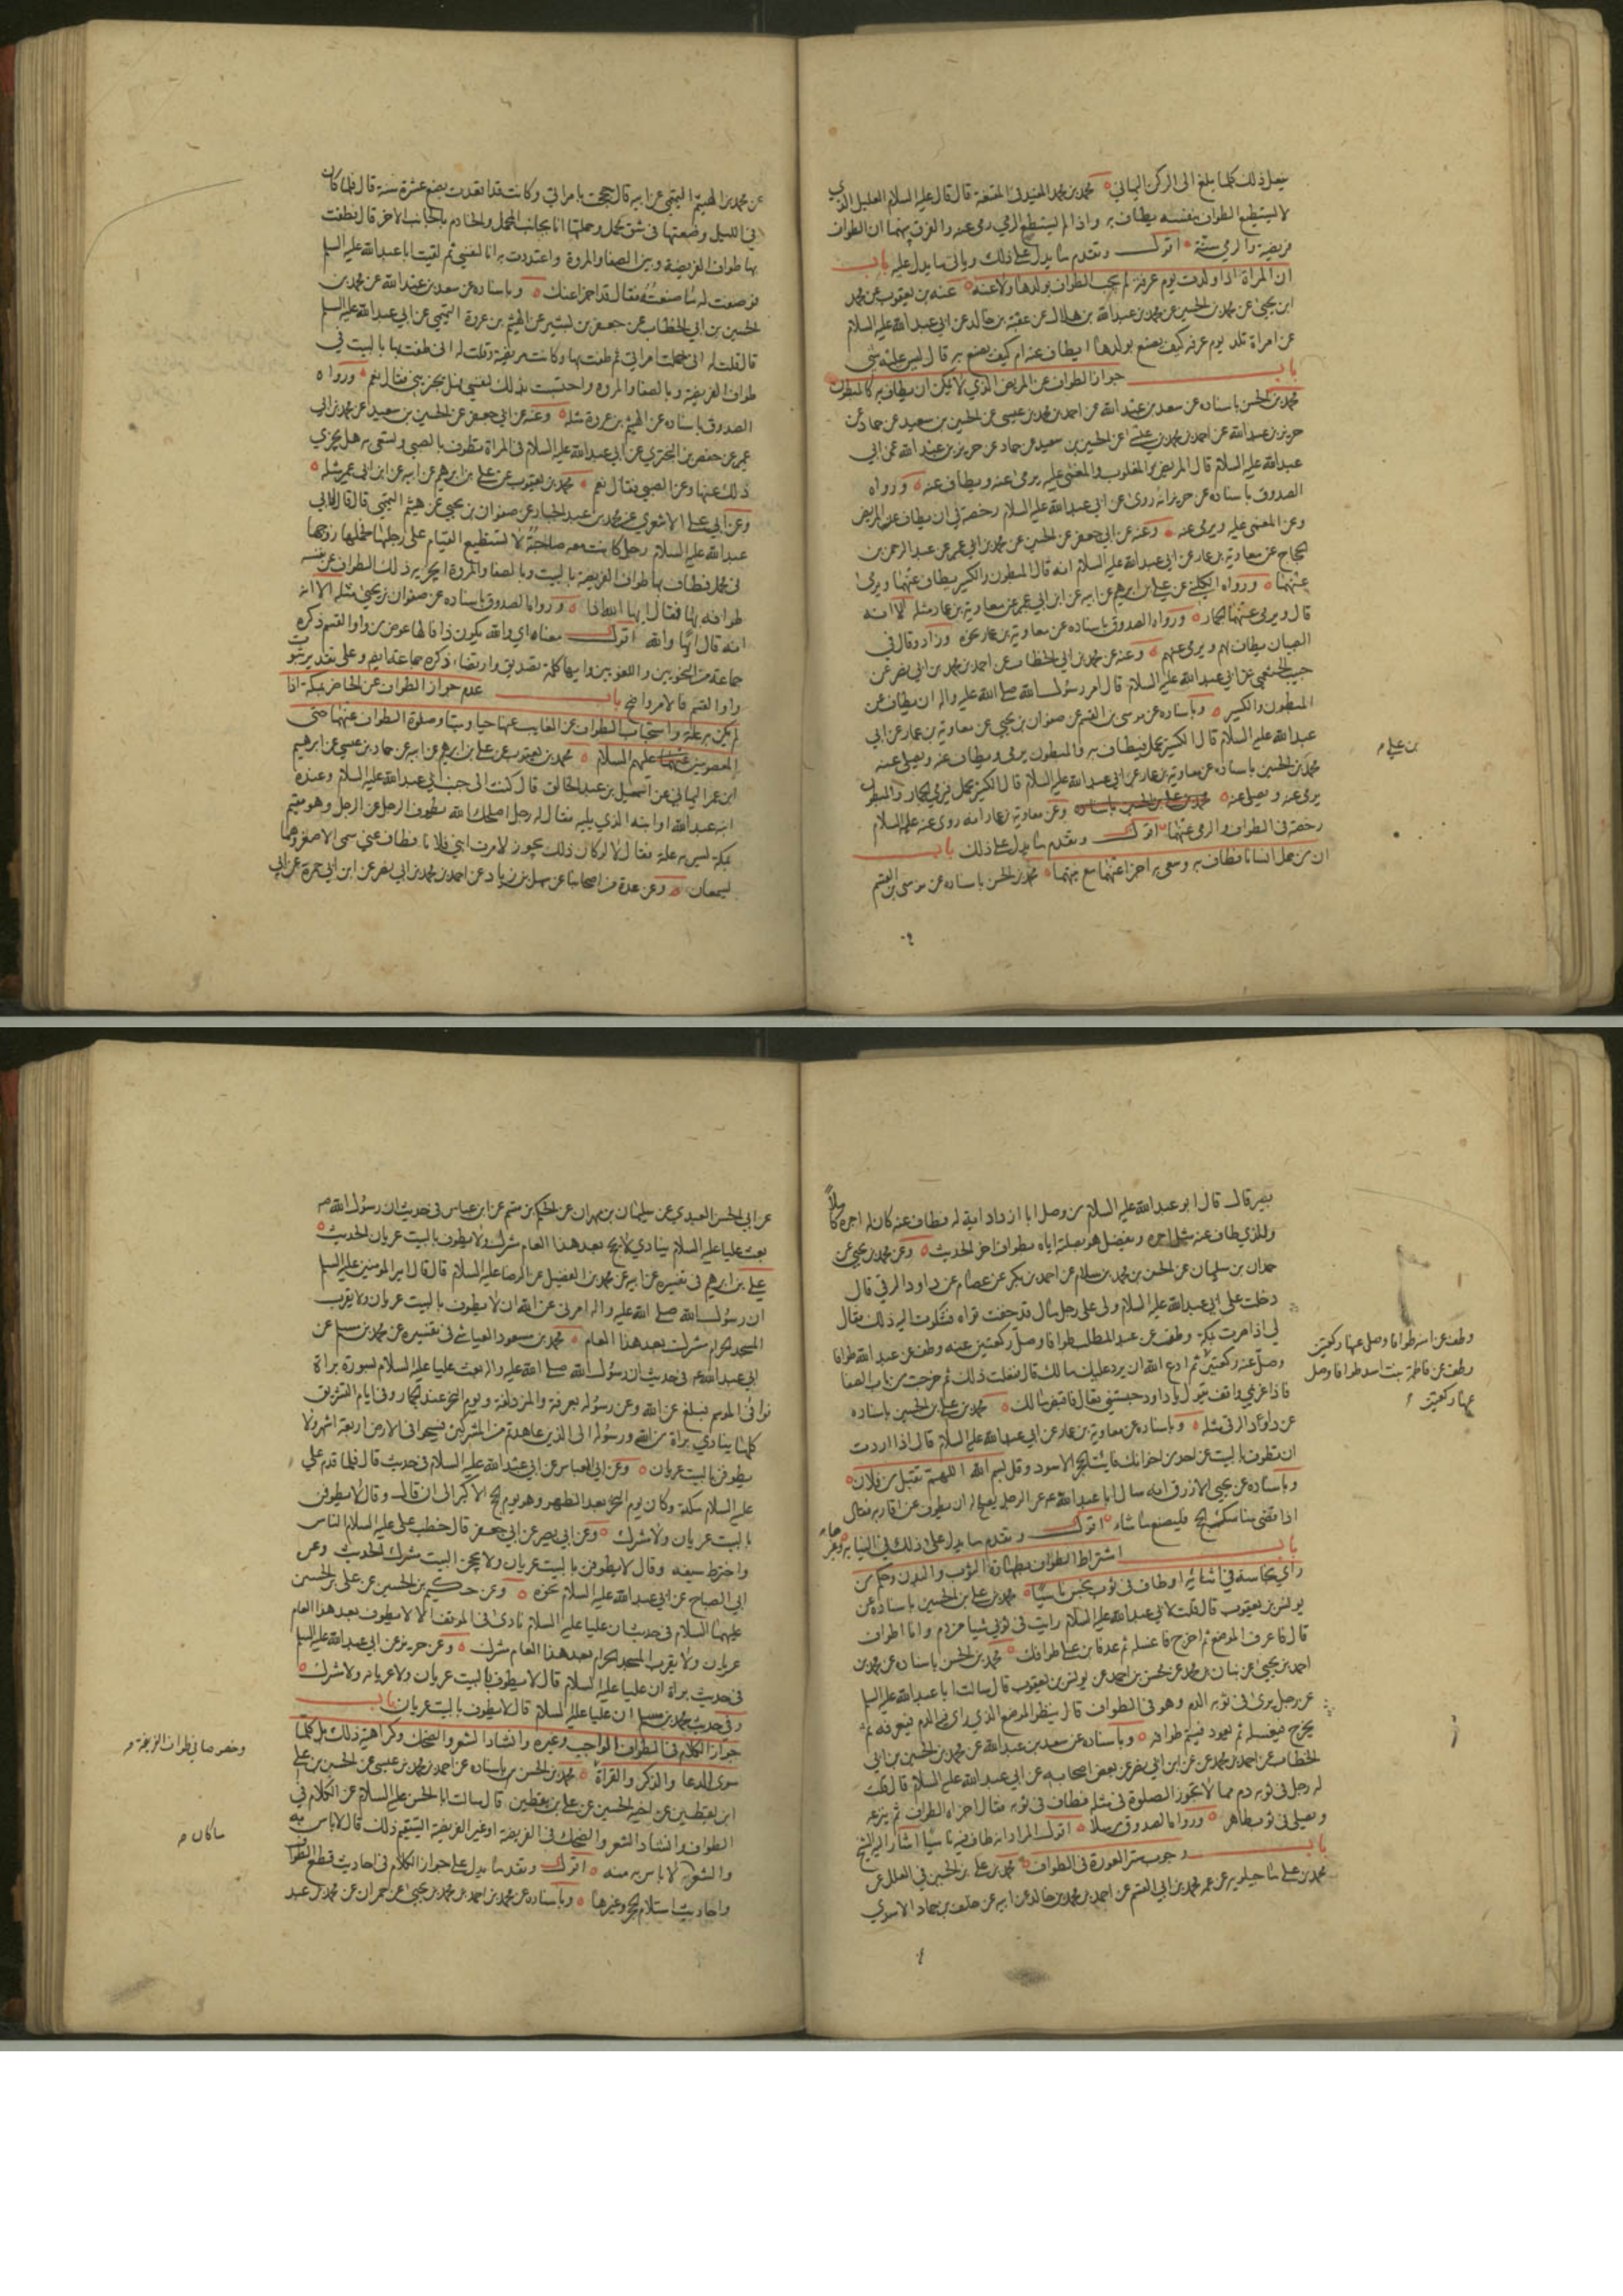 يفعل ذلك كلما بلغ الى الركن اليماني محمد بن محمد المفيد في المقنعة قال قال عليه السلام العليل الذي
لا يستطيع الطواف بنفسه يطاف به واذا لم يستطع الرمي رمي عنه والفرق بينهما ان الطواف
فريضة والرمي سنة اقول وتقدم ما يدل على ذلك وياتي ما يدل عليه باب
ان المراة اذا ولدت يوم عرفة لم يجب الطواف بولدها ولا عنه محمد بن يعقوب عن محمد
ابن يحيى عن محمد بن الحسين عن محمد بن عبدالله بن هلال عن عقبة بن خالد عن ابي عبدالله عليه السلام
عن امراة تلد يوم عرفة كيف يصنع بولدها ايطاف عنه ام كيف يصنع به قال ليس عليه شي
باب جواز الطواف عن المريض الذي لا يمكن ان يطاف به كالمبطون
محمد بن الحسن باسناده عن سعد بن عبدالله عن احمد بن محمد بن عيسى عن الحسين بن سعيد عن حماد عن
حريز بن عبدالله عن احمد بن محمد بن علي عن الحسين بن سعيد عن حماد عن حريز بن عبدالله عن ابي
عبدالله عليه السلام قال المريض المغلوب والمغمى عليه يرمى عنه ويطاف عنه ورواه
الصدوق باسناده عن حريز انه روى عن ابي عبدالله عليه السلام رخصة في ان يطاف عن المريض
وعن المغمى عليه ويرمى عنه وعنه عن ابي جعفر عن الحسين عن محمد بن ابي عمير عن عبد الرحمن بن
الحجاج عن معاوية بن عمار عن ابي عبدالله عليه السلام انه قال المبطون والكسير يطاف عنهما ويرمى
عنهما ورواه الكليني عن علي بن ابرهيم عن ابيه عن ابن ابي عمير عن معاوية بن عمار مثله الا انه
قال ويرمى عنهما الجمار ورواه الصدوق باسناده عن معاوية بن عمار نحوه وزاد وقال في
الصبيان يطاف بهم ويرمى عنهم وعنه عن محمد بن ابي الخطاب عن احمد بن محمد بن ابي نصر عن
حبيب الخثعمي عن ابي عبدالله عليه السلام قال امر رسول الله صلى الله عليه واله ان يطاف عن
المبطون والكسير وباسناده عن موسى بن القسم عن صفوان بن يحيى عن معاوية بن عمار عن ابي
عبدالله عليه السلام قال الكسير يحمل فيطاف به والمبطون يرمى ويطاف عنه ويصلى عنه
محمد بن الحسين باسناده عن معاوية بن عمار عن ابي عبدالله عليه السلام قال الكسير يحمل فيرمي الجمار والمبطون
يرمى عنه ويصلى عنه وعن معاوية بن عمار انه روى عنه عليه السلام
رخصة في الطواف والرمي عنهما اقول وتقدم ما يدل على ذلك باب
ان من حمل انسانا فطاف به وسعى به اجزا عنهما مع نيتهما محمد بن الحسن باسناده عن موسى بن القسم
بن علي م
عن محمد بن الهيثم التميمي عن ابيه قال حججت بامراتي وكانت قد اقعدت بضع عشرة سنة قال فلما كان
في الليل وضعتها في شق محمل وحملتها انا بجانب المحمل والخادم بالجانب الاخر قال فطفت
بها طواف الفريضة وبين الصفا والمروة واعتددت به انا لنفسي ثم لقيت ابا عبدالله عليه السلم
فوصفت له ما صنعته فقال قد اجزا عنك وباسناده عن سعد بن عبدالله عن محمد بن
الحسين بن ابي الخطاب عن جعفر بن بشير عن الهيثم بن عروة التميمي عن ابي عبدالله عليه السلم
قال قلت له اني حملت امراتي ثم طفت بها وكانت مريضة وقلت له اني طفت بها بالبيت في
طواف الفريضة وبالصفا والمروة واحتسبت بذلك لنفسي فهل يجزيني فقال نعم ورواه
الصدوق باسناده عن الهيثم بن عروة مثله وعنه عن ابي جعفر عن الحسين بن سعيد عن محمد بن ابي
عمير عن حفص بن البختري عن ابي عبدالله عليه السلام في المراة تطوف بالصبي وتسعى به هل يجزي
ذلك عنها وعن الصبي فقال نعم محمد بن يعقوب عن علي بن ابرهيم عن ابيه عن ابن ابي عمير مثله
وعن ابي علي الاشعري عن محمد بن عبد الجبار عن صفوان بن يحيى عن هيثم التميمي قال قلت لابي
عبدالله عليه السلام رجل كانت معه صاحبة لا تستطيع القيام على رجلها فحملها زوجها
في محمل فطاف بها طواف الفريضة بالبيت وبالصفا والمروة ايجزيه ذلك الطواف عن نفسه
طوافه بها فقال ايها الله اذا ورواه الصدوق باسناده عن صفوان بن يحيى مثله الا انه
انه قال ايها والله اقول معناه اي والله يكون ذا فالها عوض من واو القسم ذكره
جماعة من النحويين واللغويين وايها كلمة تصديق وارتضا ذكره جماعة ايضا وعلى تقدير ثبوت
واو القسم فالامر واضح باب عدم جواز الطواف عن الحاضر بمكة اذا
لم يكن به علة واستحباب الطواف عن الغايب عنها حيا وميتا وصلوة الطواف عنهما حتى
المعصومين عليهم السلام محمد بن يعقوب عن علي بن ابرهيم عن ابيه عن حماد بن عيسى عن ابرهيم
ابن عمر اليماني عن اسمعيل بن عبد الخالق قال كنت الى جنب ابي عبدالله عليه السلام وعنده
ابنه عبدالله او ابنه الذي يليه فقال له رجل اصلحك الله يطوف الرجل عن الرجل وهو مقيم
بمكة ليس به علة فقال لا لو كان ذلك يجوز لامرت ابني فلانا فطاف عني سمى الاصغر وهما
يسمعان وعن عدة من اصحابنا عن سهل بن زياد عن احمد بن محمد بن ابي نصر عن ابن ابي حمزة عن ابي
بصير قال قال ابو عبدالله عليه السلام من وصل ابا او ذا قرابة له فطاف عنه كان له اجره كاملا
وللذي طاف عنه مثل اجره ويفضل هو بصلته اياه بطواف اخر الحديث وعن محمد بن يحيى عن
حمدان بن سليمان عن الحسن بن محمد بن سلام عن احمد بن بكر بن عصام عن داود الرقي قال
دخلت على ابي عبدالله عليه السلام ولي على رجل مال قد خفت تواه فشكوت اليه ذلك فقال
لي اذا صرت بمكة وطف عن عبد المطلب طوافا وصل ركعتين عنه وطف عن عبدالله طوافا
وصل عنه ركعتين ثم ادع الله ان يرد عليك مالك قال ففعلت ذلك ثم خرجت من باب الصفا
فاذا غريمي واقف يقول يا داود حبستني تعال فاقبض مالك محمد بن علي بن الحسين باسناده
عن داود الرقي مثله وباسناده عن معاوية بن عمار عن ابي عبدالله عليه السلام قال اذا اردت
ان تطوف بالبيت عن احد من اخوانك فايت الحجر الاسود وقل بسم الله اللهم تقبل من فلان
وباسناده عن يحيى الازرق انه سال ابا عبدالله عن الرجل يصلح له ان يطوف عن اقاربه فقال
اذا قضى مناسك الحج فليصنع ما شاء اقول وتقدم ما يدل على ذلك في النيابة
باب اشتراط الطواف بطهارة الثوب والبدن وحكم من
راى نجاسة في اثنائه او طاف في ثوب نجس ناسيا محمد بن علي بن الحسين باسناده عن
يونس بن يعقوب قال قلت لابي عبدالله عليه السلام رايت في ثوبي شيا من دم وانا اطوف
قال فاعرف الموضع ثم اخرج فاغسله ثم عد فابن على طوافك محمد بن الحسن باسناده عن محمد بن
احمد بن يحيى عن بنان بن محمد عن محسن بن احمد عن يونس بن يعقوب قال سالت ابا عبدالله عليه السلم
عن رجل يرى في ثوبه الدم وهو في الطواف قال ينظر الموضع الذي راى فيه الدم فيعرفه ثم
يخرج فيغسله ثم يعود فيتم طوافه وباسناده عن سعد بن عبدالله عن محمد بن الحسين بن ابي
الخطاب عن احمد بن محمد عن ابن ابي نصر عن بعض اصحابه عن ابي عبدالله عليه السلام قال قلت
له رجل في ثوبه دم مما لا تجوز الصلوة في مثله فطاف في ثوبه فقال اجزاه الطواف ثم ينزعه
ويصلي في ثوب طاهر ورواه الصدوق مرسلا اقول المراد انه طاف فيه ناسيا اشار اليه الشيخ
باب وجوب ستر العورة في الطواف محمد بن علي بن الحسين في العلل عن
محمد بن علي ماجيلويه عن عمه محمد بن ابي القسم عن احمد بن محمد بن خالد عن ابيه عن خلف بن حماد الاسدي
وطف عن امنة طوافا وصل عنها ركعتين
وطف عن فاطمة بنت اسد طوافا وصل
عنها ركعتين
عن ابي الحسن العبدي عن سليمان بن مهران عن الحكم بن مقسم عن ابن عباس في حديث ان رسول الله ص
بعث عليا عليه السلام ينادي لا يحج بعد هذا العام مشرك ولا يطوف بالبيت عريان الحديث
علي بن ابرهيم في تفسيره عن ابيه عن محمد بن الفضيل عن الرضا عليه السلام قال قال امير المومنين عليه السلم
ان رسول الله صلى الله عليه واله امرني عن الله ان لا يطوف بالبيت عريان ولا يقرب
المسجد الحرام مشرك بعد هذا العام محمد بن مسعود العياشي في تفسيره عن محمد بن مسلم عن
ابي عبدالله ع في حديث ان رسول الله صلى الله عليه واله بعث عليا عليه السلام بسورة براة
فوافى الموسم فبلغ عن الله وعن رسوله بعرفة والمزدلفة ويوم النحر عند الجمار وفي ايام التشريق
كلها ينادي براة من الله ورسوله الى الذين عاهدتم من المشركين فسيحوا في الارض اربعة اشهر ولا
يطوفن بالبيت عريان وعن ابي العباس عن ابي عبدالله عليه السلام في حديث قال فلما قدم علي
عليه السلام مكة وكان يوم النحر بعد الظهر وهو يوم الحج الاكبر الى ان قال وقال لا يطوفن
بالبيت عريان ولا مشرك وعن ابي بصير عن ابي جعفر قال خطب علي عليه السلام الناس
واخترط سيفه وقال لا يطوفن بالبيت عريان ولا يحجن البيت مشرك الحديث وعن
ابي الصباح عن ابي عبدالله عليه السلام نحوه وعن حكيم بن الحسين عن علي بن الحسين
عليهما السلام في حديث ان عليا عليه السلام نادى في الموقف الا لا يطوف بعد هذا العام
عريان ولا يقرب المسجد الحرام بعد هذا العام مشرك وعن حريز عن ابي عبدالله عليه السلم
في حديث براة ان عليا عليه السلام قال لا يطوف بالبيت عريان ولا عريانة ولا مشرك
وفي حديث محمد بن مسلم ان عليا عليه السلام قال لا يطوف بالبيت عريان باب
جواز الكلام في الطواف الواجب وغيره وانشاد الشعر والضحك وكراهية ذلك بل كلما
سوى الدعا والذكر والقراة محمد بن الحسن باسناده عن احمد بن محمد بن عيسى عن الحسن بن علي
ابن يقطين عن اخيه الحسين عن علي بن يقطين قال سالت ابا الحسن عليه السلام عن الكلام في
الطواف وانشاد الشعر والضحك في الفريضة او غير الفريضة ايستقيم ذلك قال لا باس به
والشعر لا باس به منه اقول وتقدم ما يدل على جواز الكلام في احاديث قطع الطواف
واحاديث استلام الحجر وغيرها وباسناده عن محمد بن احمد بن محمد بن يحيى عن عمران عن محمد بن عبد
وخصوصا في طواف الفريضة م
ما كان م